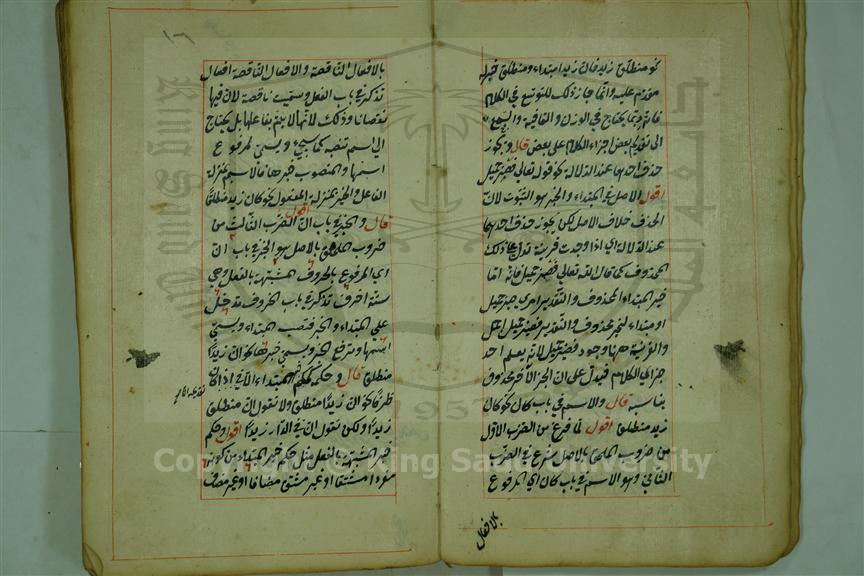 نحو منطلق زيد فان زيدا مبتداء ومنطلق خبره
مقدم عليه وانما جاز ذلك للتوسع في الكلام
فانه ربما يحتاج في الوزن والقافية والسجع
الى تقديم بعض اجزاء الكلام على بعض قال ويجوز
حذف احدهما عند الدلالة كقوله تعالى فصبر جميل
اقول الاصل في المبتداء والخبر هو الثبوت لان
الحذف خلاف الاصل لكن يجوز حذف احدهما
عند الدلالة اي اذا وجدت قرينة تدل على ذلك
المحذوف كما قال الله تعالى فصبر جميل فانه اما
خبر المبتداء المحذوف والتقدير امري صبر جميل
او مبتداء لخبر محذوف والتقدير فصبر جميل اجمل
والقرينة ههنا وجود فصبر جميل لانه يعلم احد
جزئي الكلام فيدل على ان الجزء الآخر محذوف
يناسبه قال والاسم في باب كان نحو كان
زيد منطلقا اقول لما فرغ من الضرب الاول
من ضروب الملحق بالاصل شرع في الضرب
الثاني وهو الاسم في باب كان اي المرفوع
بالافعال
١٦
بالافعال الناقصة والافعال الناقصة افعال
تذكر في باب الفعل وسميت ناقصة لان فيها
نقصانا وذلك لانها لا يتم بفاعلها بل يحتاج
الى اسم تنصبه كما سيجيء ويسمى المرفوع
اسمها والمنصوب خبرها فالاسم بمنزلة
الفاعل والخبر بمنزلة المفعول نحو كان زيد منطلقا
قال والخبر في باب ان اقول الضرب الثالث من
ضروب الملحق بالاصل هو الخبر في باب ان
اي المرفوع بالحروف المشبهة بالفعل وهي
ستة احرف تذكر في باب الحروف تدخل
على المبتداء والخبر فتنصب المبتداء ويسمى
اسمها وترفع الخبر ويسمى خبرها نحو ان زيدا
منطلق قال وحكمه كحكم خبر المبتداء الا في اذا كان
ظرفا نحو ان زيدا منطلق ولا تقول ان منطلق
زيدا ولكن تقول ان في الدار زيدا اقول وحكم
خبر المشبهة بالفعل مثل حكم خبر المبتداء من كونه
مفردا مشتقا او غير مشتق مضافا او غير مضاف
Copyright © King Saud University
1957